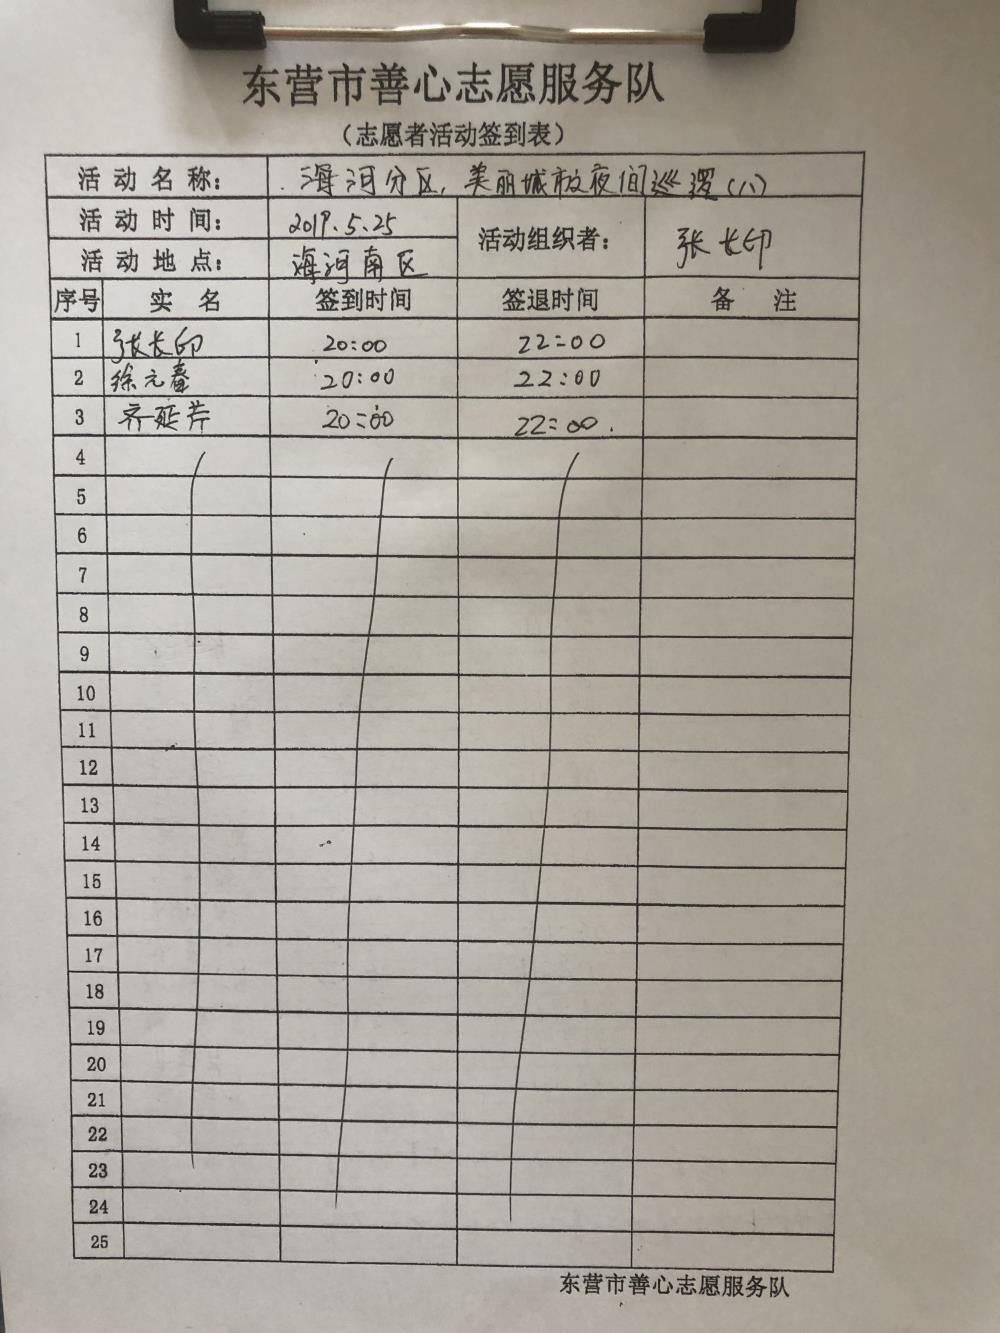 东营市善心志愿服务队
（志愿者活动签到表）
活动名称： 海河分区，美丽城市夜间巡逻（八）
活动时间： 2019.5.25 活动组织者： 张长印
活动地点： 海河南区
序号 实名 签到时间 签退时间 备注
1 张长印 20:00 22:00
2 徐元春 20:00 22:00
3 齐延芹 20:00 22:00.
4
5
6
7
8
9
10
11
12
13
14
15
16
17
18
19
20
21
22
23
24
25
东营市善心志愿服务队